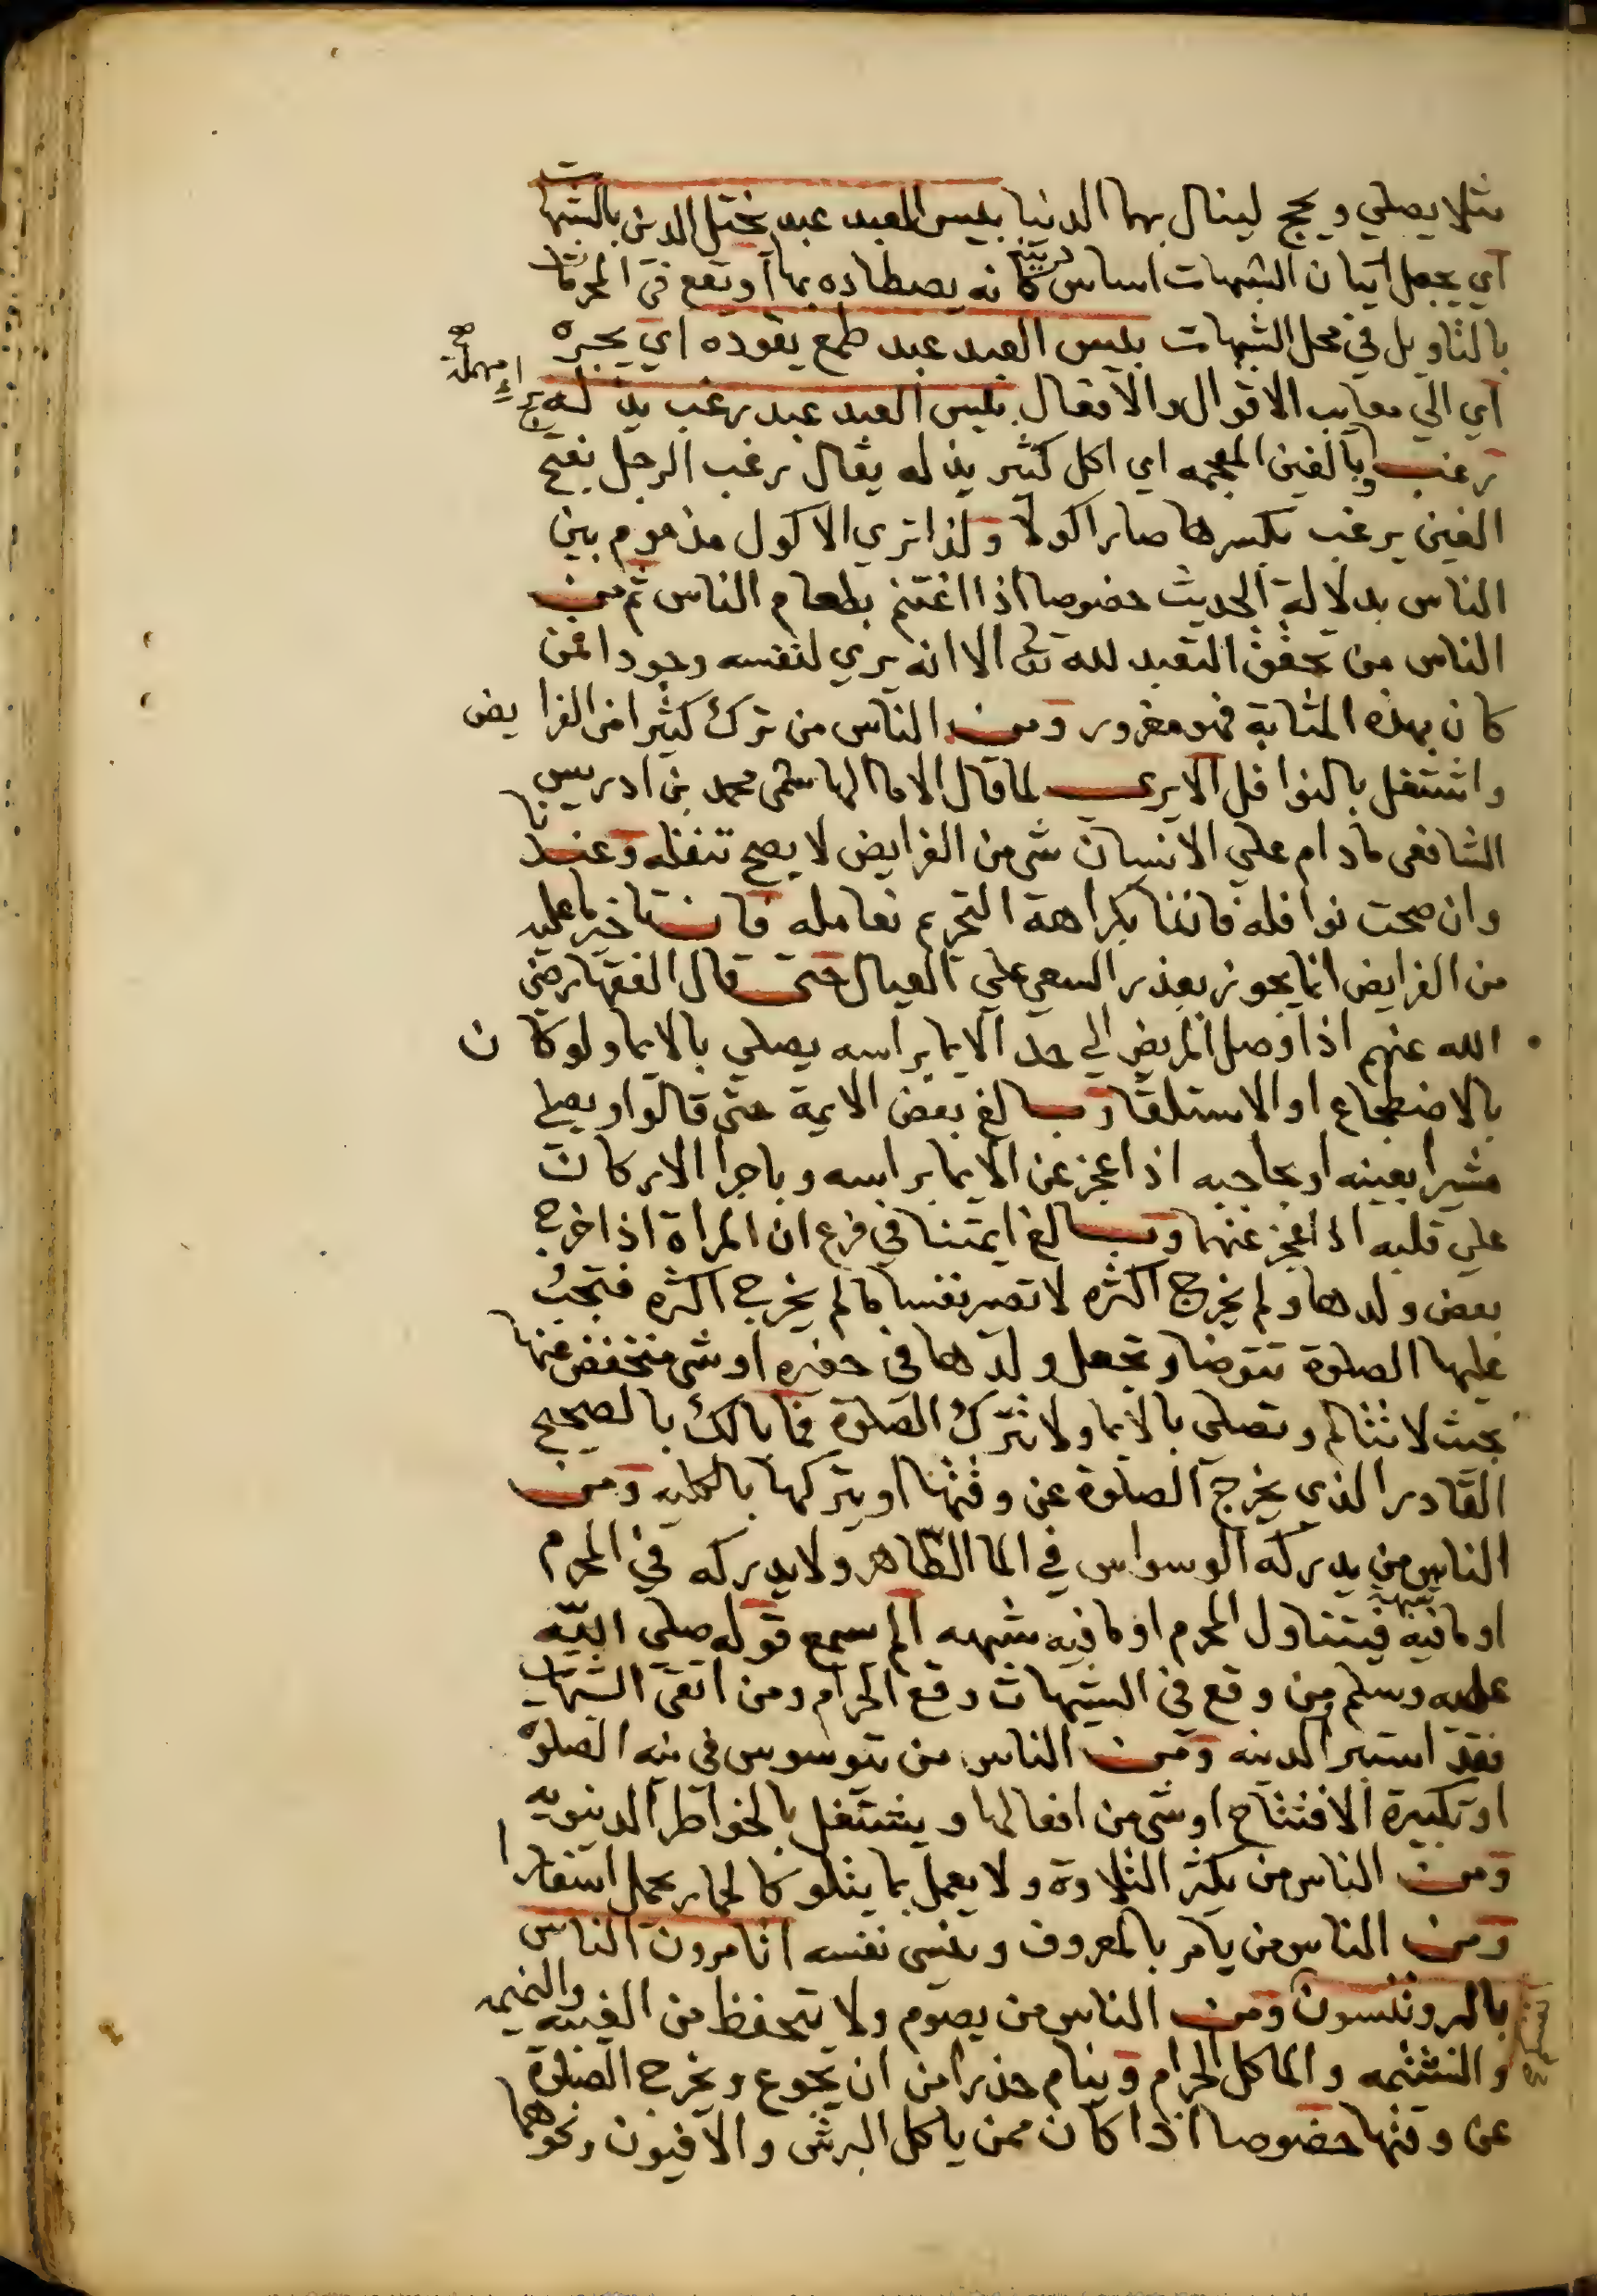 مثلا يصلي ويحج لينال بهما الدنيا بئيس العبد عبد يختل الدين بالشبهات
اي يجعل اتيان الشبهات اساس دينه كانه يصطاده بها او تقع في المحرمات
بالتاويل في محل الشبهات بئيس العبد عبد طمع يقوده اي يجره
اي الي معايب الاقوال والافعال بئيس العبد عبد رغب يذ له
رغب بالغين المعجمه اي اكل كثير يذ له يقال رغب الرجل بفتح
الغين يرغب بكسرها صار اكولا ولذا تري الاكول مذموم بين
الناس بدلالة الحديث خصوصا اذا اغتنم بطعام الناس ثم من
الناس من يحقق التعبد لله تعالى الا انه يري لنفسه وجودا فمن
كان بهذه المثابة فهو مغرور ومن الناس من ترك كثيرا من الفرايض
واشتغل بالنوافل الا يرى لما قال الاما الهاشمى محمد بن ادريس
الشافعى مادام علي الانسان شى من الفرايض لا يصح تنفله وعندنا
وان صحت نوافله فاننا بكراهة التحريم نعامله فان تاخير ما عليه
من الفرايض انما يجوز بعذر السعي علي العيال حتى قال الفقها رضي
الله عنهم اذا وصل المريض الي حد الايما براسه يصلي بالايما ولو كان
بالاضطجاع او الاستلقا وبالغ بعض الايمة حتى قالوا ويصلي
مشيرا بعينه او بحاجبه اذا عجز عن الايما براسه وباجرا الاركان
علي قلبه اذا عجز عنهما وبالغ ايمتنا في فرع ان المراة اذا خرج
بعض ولدها ولم يخرج اكثره لا تصير نفسا مالم يخرج اكثره فتجب
عليها الصلوة تتوضا وتجعل ولدها في حفيره او شى منخفض عنها
بحيث لا تتالم وتصلي بالايما ولا تترك الصلوة فما بالك بالصحيح
القادر الذي يخرج الصلوة عن وقتها او يتركها بالكليه ومن
الناس من يدركه الوسواس في الما الطاهر ولا يدركه في المحرم
او ما فيه شبهة فيتناول المحرم او ما فيه شبهه الم يسمع قوله صلي الله
عليه وسلم من وقع في الشبهات وقع الحرام ومن اتقى الشبهات
فقد استبرا لدينه ومن الناس من يتوسوس في نيه الصلوة
او تكبيرة الافتتاح او شى من افعالها ويشتغل بالخواطر الدنيويه
ومن الناس من يكثر التلاوة ولا يعمل بما يتلو كالحمار يحمل اسفارا
ومن الناس من يامر بالمعروف وينسى نفسه اتامرون الناس
بالبر وتنسون ومن الناس من يصوم ولا يتحفظ من الغيبه والنميمه
والشتمه والماكل الحرام وينام حذرا من ان يجوع ويخرج الصلوة
عن وقتها خصوصا اذا كان ممن ياكل البرش والافيون ونحوهما